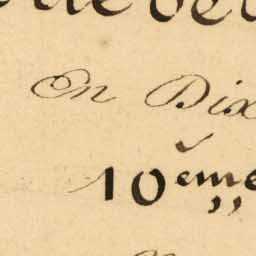 En Dix
10eme